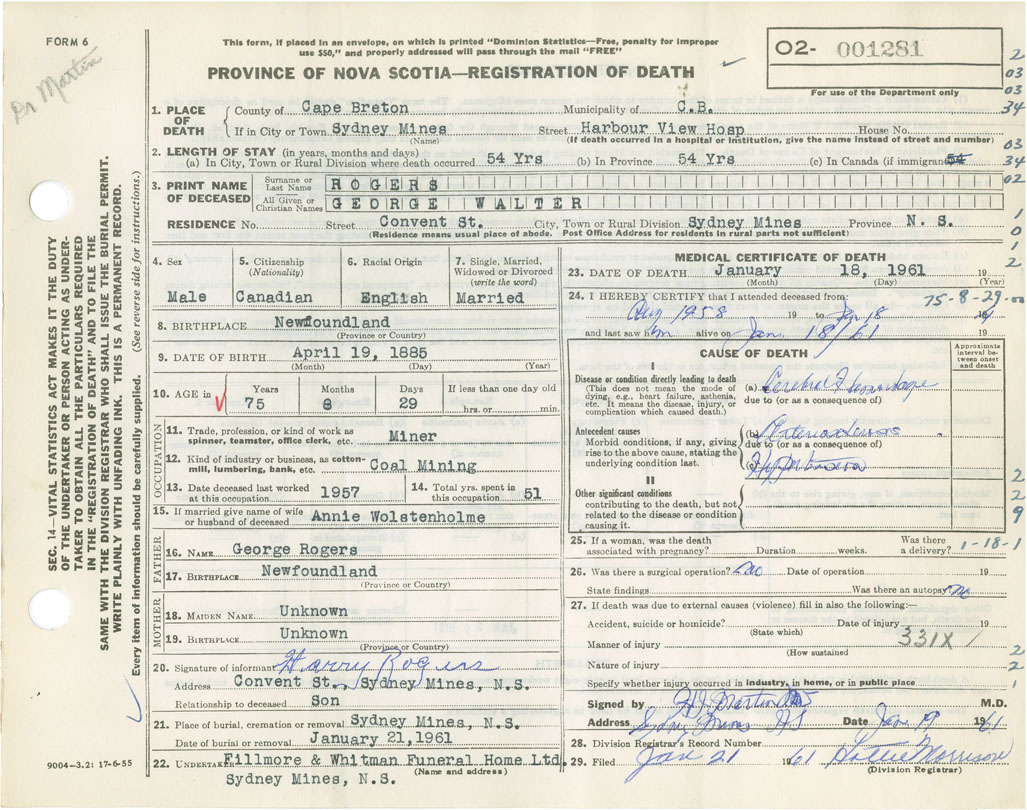 FORM 6
Dr Martin
This form, if placed in an envelope, on which is printed "Dominion Statistics—Free, penalty for improper
use $50," and properly addressed will pass through the mail "FREE"
PROVINCE OF NOVA SCOTIA—REGISTRATION OF DEATH
02- 001281
For use of the Department only
SEC. 14—VITAL STATISTICS ACT MAKES IT THE DUTY
OF THE UNDERTAKER OR PERSON ACTING AS UNDER-
TAKER TO OBTAIN ALL THE PARTICULARS REQUIRED
IN THE "REGISTRATION OF DEATH" AND TO FILE THE
SAME WITH THE DIVISION REGISTRAR WHO SHALL ISSUE THE BURIAL PERMIT.
WRITE PLAINLY WITH UNFADING INK. THIS IS A PERMANENT RECORD.
Every item of information should be carefully supplied. (See reverse side for instructions.)
1. PLACE OF DEATH County of Cape Breton Municipality of C.B.
If in City or Town Sydney Mines Street Harbour View Hosp House No.
(Name) (If death occurred in a hospital or institution, give the name instead of street and number)
2. LENGTH OF STAY (in years, months and days)
(a) In City, Town or Rural Division where death occurred 54 Yrs (b) In Province 54 Yrs (c) In Canada (if immigrant) 54
3. PRINT NAME OF DECEASED Surname or Last Name ROGERS
All Given or Christian Names GEORGE WALTER
RESIDENCE No. Street Convent St. City, Town or Rural Division Sydney Mines Province N. S.
(Residence means usual place of abode. Post Office Address for residents in rural parts not sufficient)
4. Sex Male
5. Citizenship (Nationality) Canadian
6. Racial Origin English
7. Single, Married, Widowed or Divorced (write the word) Married
8. BIRTHPLACE Newfoundland
(Province or Country)
9. DATE OF BIRTH April 19, 1885
(Month) (Day) (Year)
10. AGE in Years 75 Months 8 Days 29 If less than one day old hrs. or min.
OCCUPATION
11. Trade, profession, or kind of work as spinner, teamster, office clerk, etc. Miner
12. Kind of industry or business, as cotton-mill, lumbering, bank, etc. Coal Mining
13. Date deceased last worked at this occupation 1957
14. Total yrs. spent in this occupation 51
15. If married give name of wife or husband of deceased Annie Wolstenholme
FATHER
16. NAME George Rogers
17. BIRTHPLACE Newfoundland
(Province or Country)
MOTHER
18. MAIDEN NAME Unknown
19. BIRTHPLACE Unknown
(Province or Country)
20. Signature of informant Harry Rogers
Address Convent St., Sydney Mines, N.S.
Relationship to deceased Son
21. Place of burial, cremation or removal Sydney Mines, N.S.
Date of burial or removal January 21,1961
22. UNDERTAKER Fillmore & Whitman Funeral Home Ltd.
(Name and address)
Sydney Mines, N.S.
9004—3.2: 17-6-55
MEDICAL CERTIFICATE OF DEATH
23. DATE OF DEATH January 18, 1961 19
(Month) (Day) (Year)
24. I HEREBY CERTIFY that I attended deceased from: 75-8-29-
Aug 1958 19 to Jan 18 1961
and last saw him alive on Jan 18/61 19
CAUSE OF DEATH
Approximate interval between onset and death
I
Disease or condition directly leading to death
(This does not mean the mode of dying, e.g., heart failure, asthenia, etc. It means the disease, injury, or complication which caused death.)
(a) Cerebral Hemorrhage
due to (or as a consequence of)
Antecedent causes
Morbid conditions, if any, giving rise to the above cause, stating the underlying condition last.
(b)
due to (or as a consequence of)
(c) Hypertension
II
Other significant conditions
contributing to the death, but not related to the disease or condition causing it.
25. If a woman, was the death associated with pregnancy? Duration weeks. Was there a delivery? 1-18-1
26. Was there a surgical operation? No Date of operation 19
State findings Was there an autopsy? No
27. If death was due to external causes (violence) fill in also the following:—
Accident, suicide or homicide? Date of injury 19
(State which)
Manner of injury 331X
(How sustained)
Nature of injury
Specify whether injury occurred in industry, in home, or in public place
Signed by H J Martin M.D.
Address Sydney Mines NS Date Jan 19 1961
28. Division Registrar's Record Number
29. Filed Jan 21 1961 Hattie Morrison
(Division Registrar)
2
03
03
34
03
34
02
1
0
1
2
2
2
9
1
2
2
1